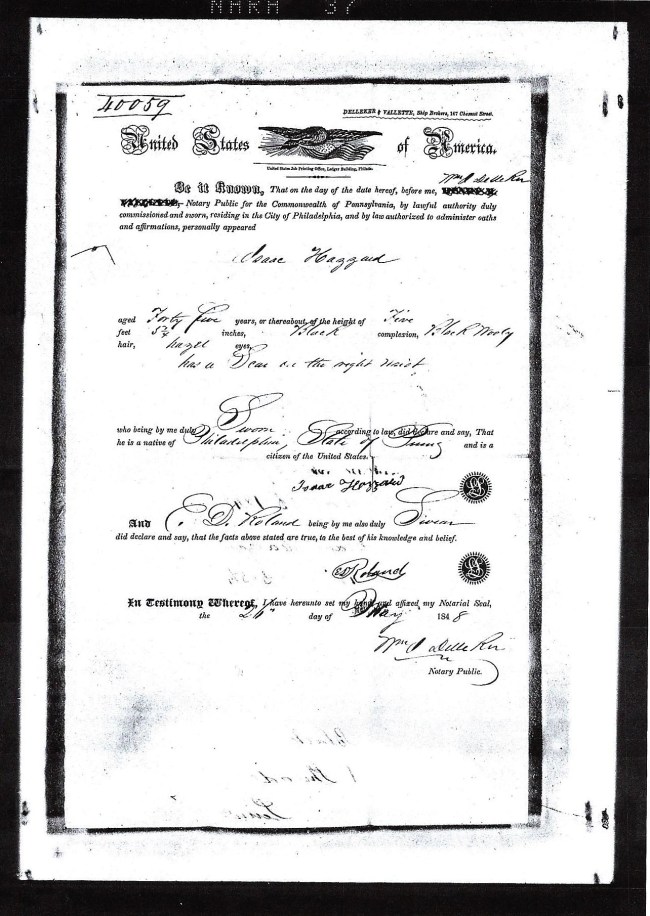 NARA 37
40059
DELLEKER & VALLETTE, Ship Brokers, 167 Chesnut Street.
United States of America.
United States Job Printing Office, Ledger Building, Philada.
Wm J Delleker
Be it Known, That on the day of the date hereof, before me,
Notary Public for the Commonwealth of Pennsylvania, by lawful authority duly
commissioned and sworn, residing in the City of Philadelphia, and by law authorized to administer oaths
and affirmations, personally appeared
Isaac Hazzard
aged Forty five years, or thereabout, of the height of Five
feet inches, Black complexion, Black Wooly
hair, hazel eyes,
has a Scar on the right
who being by me duly Sworn according to law, did declare and say, That
he is a native of Philadelphia, State of Penna and is a
citizen of the United States.
Isaac Hozzard
And E. D. Roland being by me also duly Sworn
did declare and say, that the facts above stated are true, to the best of his knowledge and belief.
ED Roland
In Testimony Whereof, I have hereunto set my hand and affixed my Notarial Seal,
the 26" day of May 1848
Wm J Delleker
Notary Public.